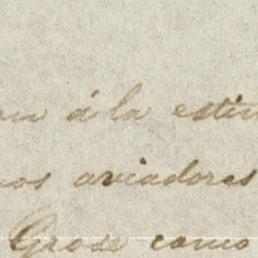 á la estim
nos aviadores
Grose como